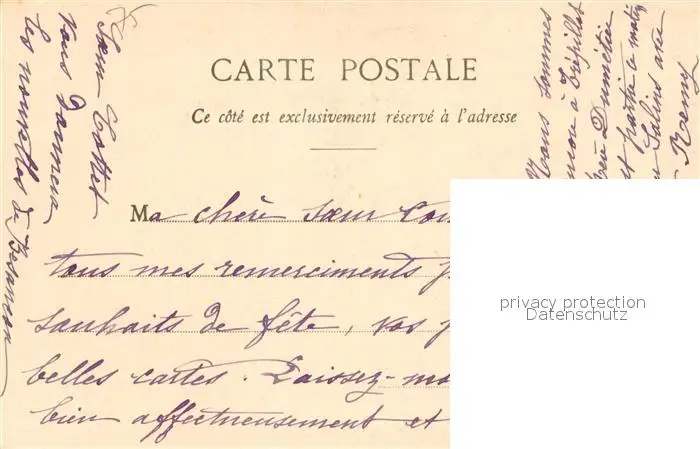 CARTE POSTALE
Ce côté est exclusivement réservé à l'adresse
Ma chère sœur
tous mes remerciments
souhaits de fête, vos
belles cartes. Laissez-mo
bien affectueusement et
Sœur
vous donnera
les nouvelles de Besançon
75
Nous sommes
à
et partie le matin
Salins avec
privacy protection
Datenschutz